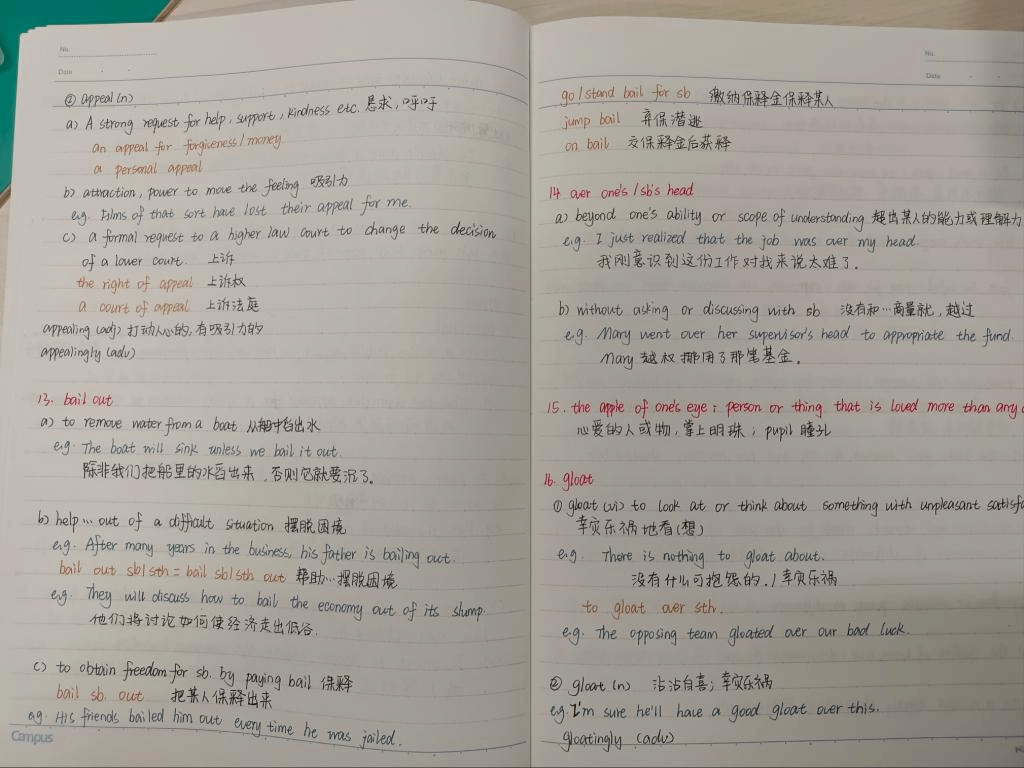 No.
Date
② appeal (n)
a) A strong request for help, support, kindness etc. 恳求, 呼吁
an appeal for forgiveness / money
a personal appeal
b) attraction, power to move the feeling 吸引力
e.g. Films of that sort have lost their appeal for me.
c) a formal request to a higher law court to change the decision
of a lower court. 上诉
the right of appeal 上诉权
a court of appeal 上诉法庭
appealing (adj) 打动人心的, 有吸引力的
appealingly (adv)
13. bail out
a) to remove water from a boat 从船中舀出水
e.g. The boat will sink unless we bail it out.
除非我们把船里的水舀出来, 否则它就要沉了。
b) help … out of a difficult situation 摆脱困境
e.g. After many years in the business, his father is bailing out.
bail out sb/sth = bail sb/sth out 帮助…摆脱困境
e.g. They will discuss how to bail the economy out of its slump.
他们将讨论如何使经济走出低谷.
c) to obtain freedom for sb. by paying bail 保释
bail sb. out 把某人保释出来
eg. His friends bailed him out every time he was jailed.
Campus
No.
Date
go / stand bail for sb 缴纳保释金保释某人
jump bail 弃保潜逃
on bail 交保释金后获释
14. over one's / sb's head
a) beyond one's ability or scope of understanding 超出某人的能力或理解力
e.g. I just realized that the job was over my head.
我刚意识到这份工作对我来说太难了.
b) without asking or discussing with sb 没有和…商量就, 越过
e.g. Mary went over her supervisor's head to appropriate the fund.
Mary 越权挪用了那笔基金.
15. the apple of one's eye: person or thing that is loved more than any
心爱的人或物, 掌上明珠; pupil 瞳孔
16. gloat
① gloat (vi) to look at or think about something with unpleasant
幸灾乐祸地看(想)
e.g. There is nothing to gloat about.
没有什么可抱怨的. / 幸灾乐祸
to gloat over sth.
e.g. The opposing team gloated over our bad luck.
② gloat (n) 沾沾自喜; 幸灾乐祸
e.g. I'm sure he'll have a good gloat over this.
gloatingly (adv)